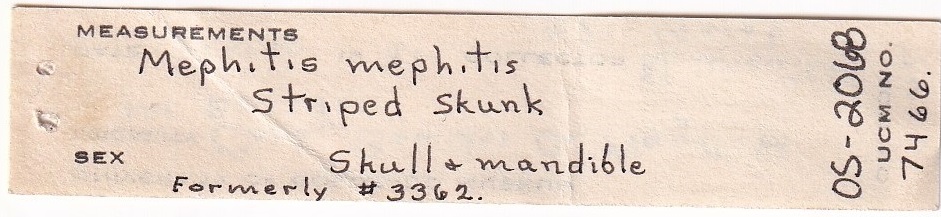 MEASUREMENTS
Mephitis mephitis
Striped Skunk
SEX
Skull & mandible
Formerly #3362.
OS-206B
UCM NO.
7466.